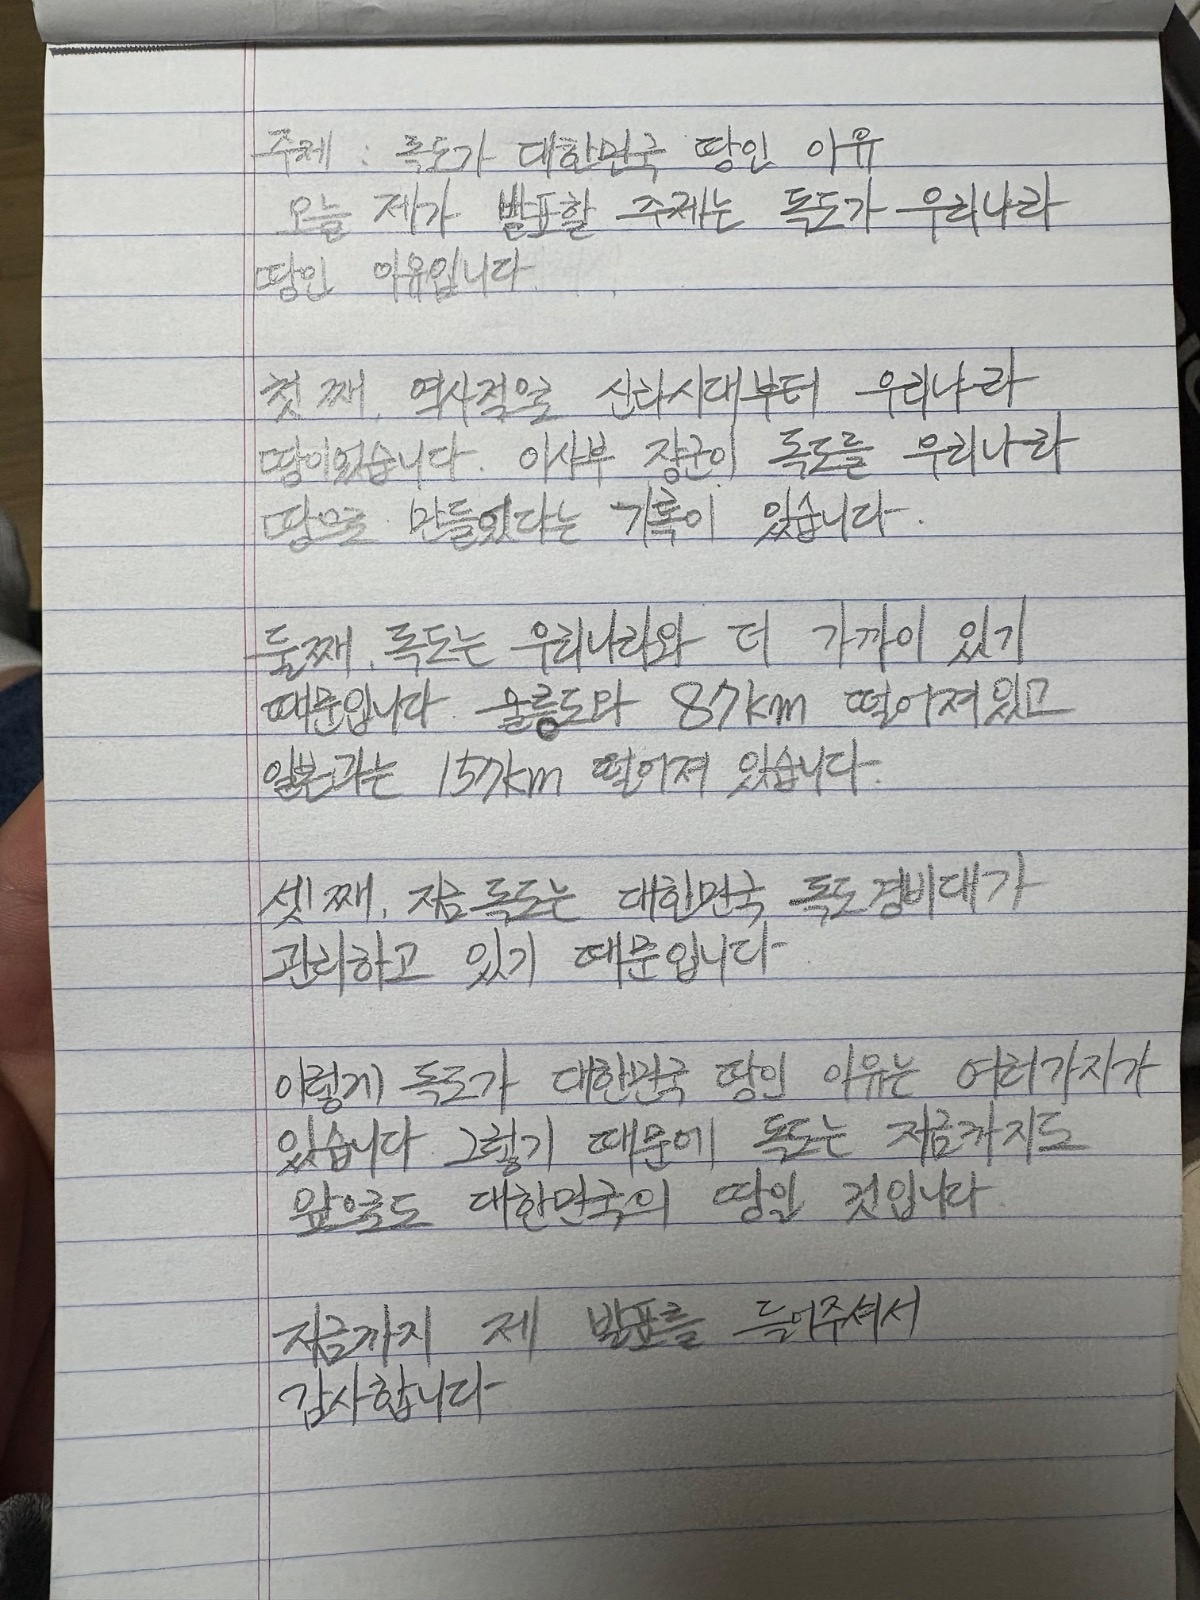 주제 : 독도가 대한민국 땅인 이유
오늘 제가 발표할 주제는 독도가 우리나라
땅인 이유입니다.
첫째, 역사적으로 신라시대부터 우리나라
땅이었습니다. 이사부 장군이 독도를 우리나라
땅으로 만들었다는 기록이 있습니다.
둘째, 독도는 우리나라와 더 가까이 있기
때문입니다. 울릉도와 87km 떨어져있고
일본과는 157km 떨어져 있습니다.
셋째, 지금 독도는 대한민국 독도경비대가
관리하고 있기 때문입니다
이렇게 독도가 대한민국 땅인 이유는 여러가지가
있습니다 그렇기 때문에 독도는 지금까지도
앞으로도 대한민국의 땅일 것입니다.
지금까지 제 발표를 들어주셔서
감사합니다